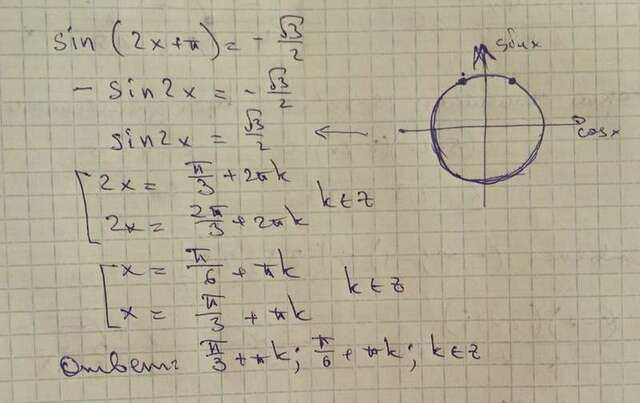 sin (2x+π) = - √3/2
- sin2x = - √3/2
sin2x = √3/2
[ 2x = π/3 + 2πk
2x = 2π/3 + 2πk
k∈Z
[ x = π/6 + πk
x = π/3 + πk
k∈Z
Ответ: π/3 + πk; π/6 + πk; k∈Z
sinx
cosx